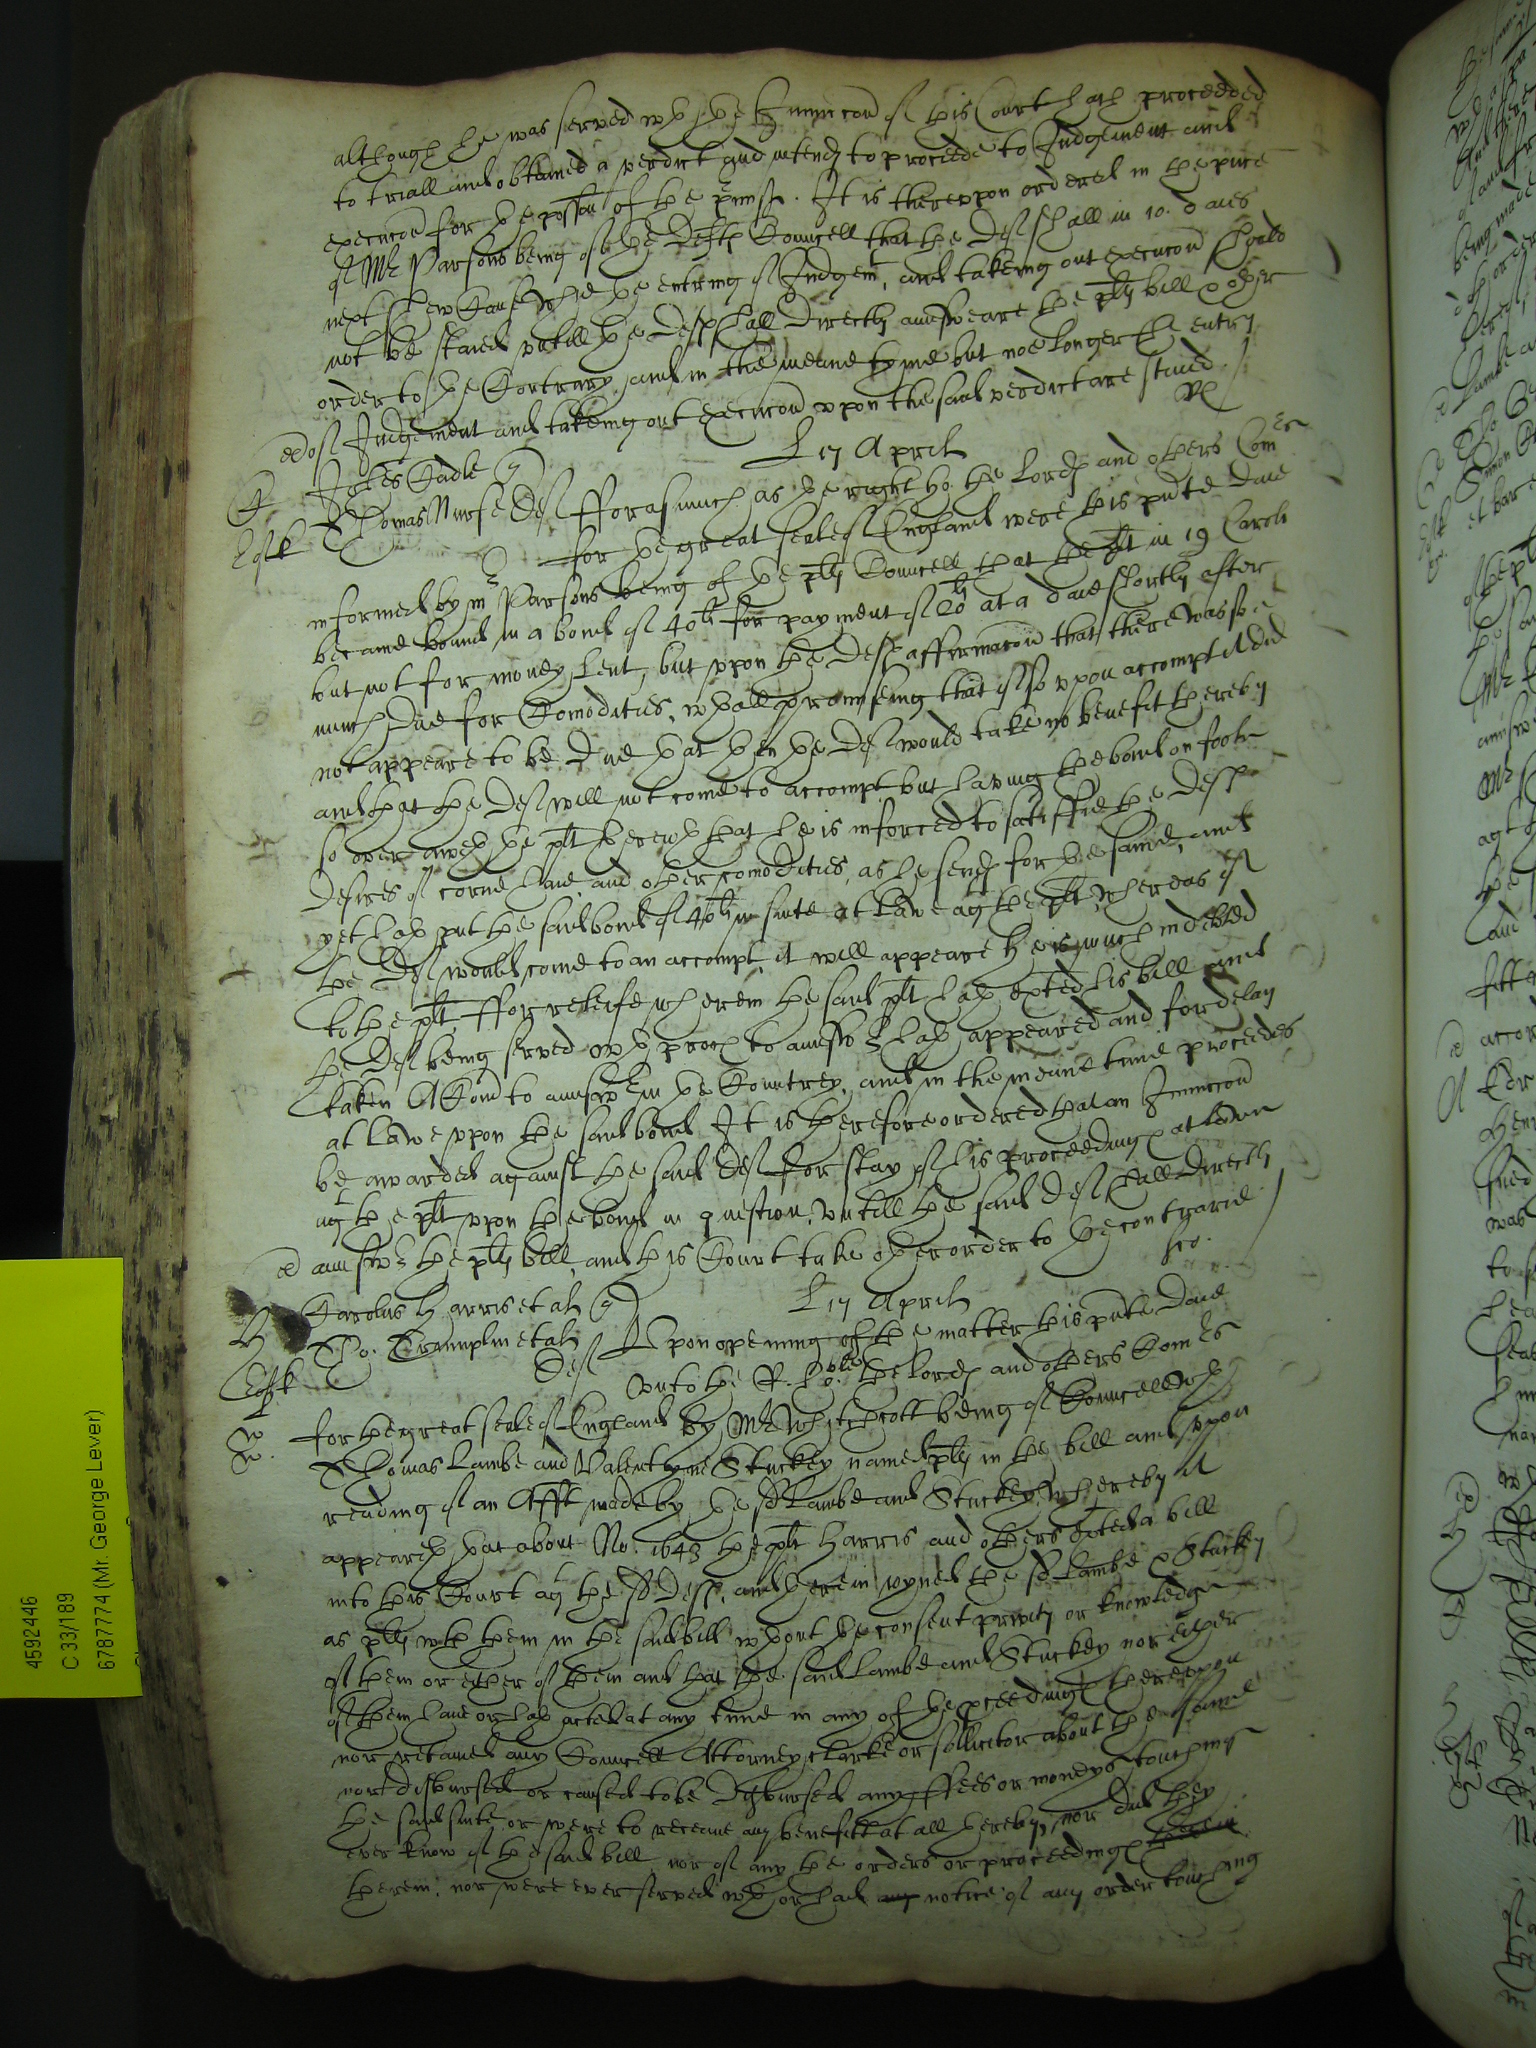 although he was served wth the Iniuncion of this Court hath proceeded
to triall and obtained a verdict and intends to proceede to Judgement and
execucion for the possion of the pmisses. It is therevpon ordered in the pnce
of Mr Parsons being of the Defts Councell that the Deft shall in 10. daies
next shew Cause why the entring of Judgemt, and takeing out execucion should
not be staied vntill the Deft shall directly aunsweare the plts bill & other
order to the Contrary, and in the meane tyme but noe longer the entry
of Judgement and takeing out execucion vpon the said verdict are staied.
L 17 Aprill
Thomas Nurse Deft
Forasmuch as the right ho: the Lords and others Comrs
for the great seale of England were this pnte daie
informed by mr Parsons being of the plts Councell that the plt in 19 Caroli
became bound in a bond of 40li for payment of 20li at a daie shortly after
but not for money lent, but vpon the Defts affirmacion that there was soe
much due for Comodities, wthall promiseing that if so vpon accompt it did
not appeare to be due that then the Deft would take no benefit thereby
and that the Deft will not come to accompt but haveing the bond on foote
so over aweth the plt therewth that he is inforced to satisfie the Defts
desires of corne haie, and other comodities, as he sends for the same, and
yet hath put the said bond of 40li in suite at lawe agt the plt, whereas if
the Deft would come to an accompt, it will appeare he is much indebted
to the plt, ffor releife wherein the said plt hath exted his bill and
the Deft being served wth proces to aunswr hath appeared and for delay
taken A Comn to aunswr in the Countrey, and in the meane time proceedes
at lawe vpon the said bond. It is therefore ordered that an Iniuncion
be awarded against the said Deft for stay of his proceedings at lawe
agt the plt vpon the bond in question, vntill the said Deft shall directly
aunswr the plts bill, and this Court take other order to the contrarie
L 17 Aprill
Carolus Harris et al
Tho: Trumplin et al Deft
Vpon opening of the matter this pnte daie
vnto the R. hoble the lords and others Comrs
for the great seale of England by Mr Whitchcott being of Councell wth
Thomas Lambe and Valentyne Stuckey named plts in the bill and vpon
reading of an Afft made by the sd Lambe and Stuckey, whereby it
appeareth that about No. 1643 the plt Harris and others exted a bill
into this Court agt the sd Defts, and therein ioyned the sd Lambe & Stuckey
as plts wth them in the said bill wthout the consent privity or knowledge
of them or either of them and that the said Lambe and Stuckey nor either
of them have or hath acted at any time in any of the pceedings therevpon
nor retained any Councell Attorney, clarke or sollicitor about the same
nor disbursed or caused to be disbursed any ffees or moneys touching
the said suite or were to receaue any benefitt at all thereby, nor did they
ever know of the said bill, nor of any the orders or proceedings
therein, nor were ever served wth or had notice of any order touching
4592446
C 33/189
6787774 (Mr. George Lever)